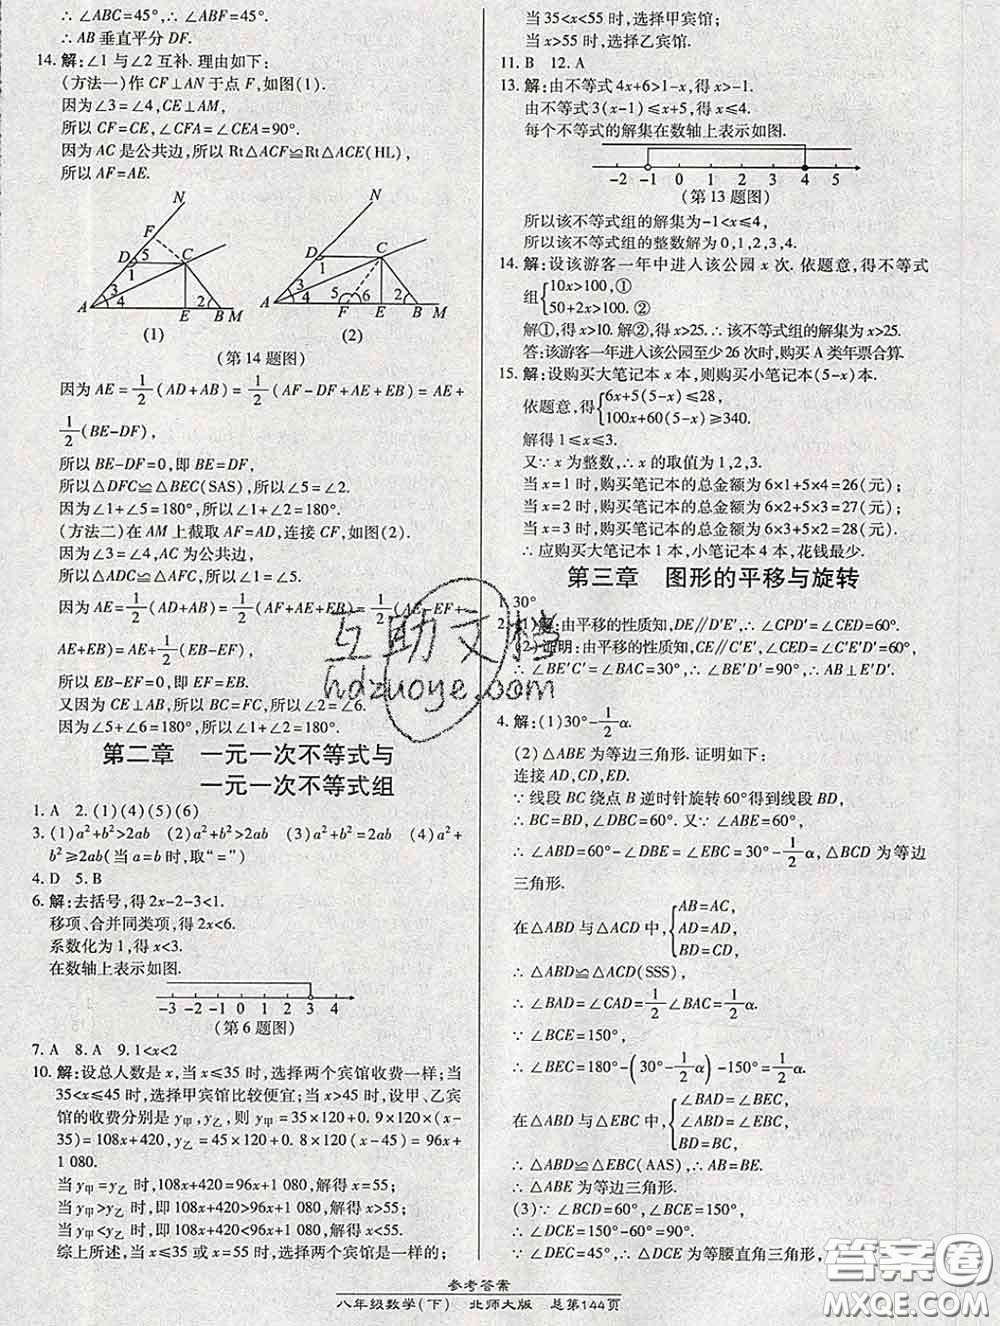 ∴ ∠ABC=45°,∴ ∠ABF=45°.
∴ AB 垂直平分 DF.
14. 解:∠1 与∠2 互补. 理由如下:
(方法一)作 CF⊥AN 于点 F,如图(1).
因为∠3=∠4,CE⊥AM,
所以 CF=CE,∠CFA=∠CEA=90°.
因为 AC 是公共边,所以 Rt△ACF≌Rt△ACE(HL),
所以 AF=AE.
N
F
D 5 C
1
3
4
2
A E B M
(1)
N
D C
1
3
4
5 6 2
A F E B M
(2)
(第 14 题图)
因为 AE=1/2(AD+AB)=1/2(AF-DF+AE+EB)=AE+
1/2(BE-DF),
所以 BE-DF=0,即 BE=DF,
所以△DFC≌△BEC(SAS),所以∠5=∠2.
因为∠1+∠5=180°,所以∠1+∠2=180°.
(方法二)在 AM 上截取 AF=AD,连接 CF,如图(2).
因为∠3=∠4,AC 为公共边,
所以△ADC≌△AFC,所以∠5=∠1.
因为 AE=1/2(AD+AB)=1/2(AF+AE+EB)=1/2(AE-EF+
AE+EB)=AE+1/2(EB-EF),
所以 EB-EF=0,即 EF=EB.
又因为 CE⊥AB,所以 BC=FC,所以∠2=∠6.
因为∠5+∠6=180°,所以∠1+∠2=180°.
第二章 一元一次不等式与
一元一次不等式组
1. A 2. (1)(4)(5)(6)
3. (1)a²+b²>2ab (2)a²+b²>2ab (3)a²+b²=2ab (4)a²+
b²≥2ab(当 a=b 时,取“=”)
4. D 5. B
6. 解:去括号,得 2x-2-3<1.
移项、合并同类项,得 2x<6.
系数化为 1,得 x<3.
在数轴上表示如图.
-3 -2 -1 0 1 2 3 4
(第 6 题图)
7. A 8. A 9. 1<x<2
10. 解:设总人数是 x,当 x≤35 时,选择两个宾馆收费一样;当
35<x≤45 时,选择甲宾馆比较便宜;当 x>45 时,设甲、乙宾
馆的收费分别是 y甲,y乙,则 y甲=35×120+0.9×120×(x-
35)=108x+420,y乙=45×120+0.8×120(x-45)=96x+
1 080.
当 y甲=y乙 时,108x+420=96x+1 080,解得 x=55;
当 y甲>y乙 时,即 108x+420>96x+1 080,解得 x>55;
当 y甲<y乙 时,即 108x+420<96x+1 080,解得 x<55.
综上所述,当 x≤35 或 x=55 时,选择两个宾馆是一样的;
当 35<x<55 时,选择甲宾馆;
当 x>55 时,选择乙宾馆.
11. B 12. A
13. 解:由不等式 4x+6>1-x,得 x>-1.
由不等式 3(x-1)≤x+5,得 x≤4.
每个不等式的解集在数轴上表示如图.
-2 -1 0 1 2 3 4 5
(第 13 题图)
所以该不等式组的解集为-1<x≤4,
所以该不等式组的整数解为 0,1,2,3,4.
14. 解:设该游客一年中进入该公园 x 次. 依题意,得不等式
组{10x>100,①
50+2x>100. ②
解①,得 x>10. 解②,得 x>25. ∴ 该不等式组的解集为 x>25.
答:该游客一年进入该公园至少 26 次时,购买 A 类年票合算.
15. 解:设购买大笔记本 x 本,则购买小笔记本(5-x)本.
依题意,得{6x+5(5-x)≤28,
100x+60(5-x)≥340.
解得 1≤x≤3.
又∵ x 为整数,∴ x 的取值为 1,2,3.
当 x=1 时,购买笔记本的总金额为 6×1+5×4=26(元);
当 x=2 时,购买笔记本的总金额为 6×2+5×3=27(元);
当 x=3 时,购买笔记本的总金额为 6×3+5×2=28(元).
∴ 应购买大笔记本 1 本,小笔记本 4 本,花钱最少.
第三章 图形的平移与旋转
1. 30°
2. (1)解:由平移的性质知,DE∥D′E′,∴ ∠CPD′=∠CED=60°.
(2)证明:由平移的性质知,CE∥C′E′,∠C′E′D′=∠CED=60°,
∴ ∠BE′C′=∠BAC=30°,∴ ∠BE′D′=90°,∴ AB⊥E′D′.
4. 解:(1)30°-1/2α.
(2)△ABE 为等边三角形. 证明如下:
连接 AD,CD,ED.
∵ 线段 BC 绕点 B 逆时针旋转 60°得到线段 BD,
∴ BC=BD,∠DBC=60°. 又∵ ∠ABE=60°,
∴ ∠ABD=60°-∠DBE=∠EBC=30°-1/2α,△BCD 为等边
三角形.
在△ABD 与△ACD 中,{AB=AC,
AD=AD,
BD=CD,
∴ △ABD≌△ACD(SSS),
∴ ∠BAD=∠CAD=1/2∠BAC=1/2α.
∵ ∠BCE=150°,
∴ ∠BEC=180°-(30°-1/2α)-150°=1/2α.
在△ABD 与△EBC 中,{∠BAD=∠BEC,
∠ABD=∠EBC,
BD=BC,
∴ △ABD≌△EBC(AAS),∴ AB=BE.
∴ △ABE 为等边三角形.
(3)∵ ∠BCD=60°,∠BCE=150°,
∴ ∠DCE=150°-60°=90°.
∵ ∠DEC=45°,∴ △DCE 为等腰直角三角形,
互助文档
hdzuoye.com
参考答案
八年级数学(下) 北师大版 总第144页
答案圈
MXQE.COM